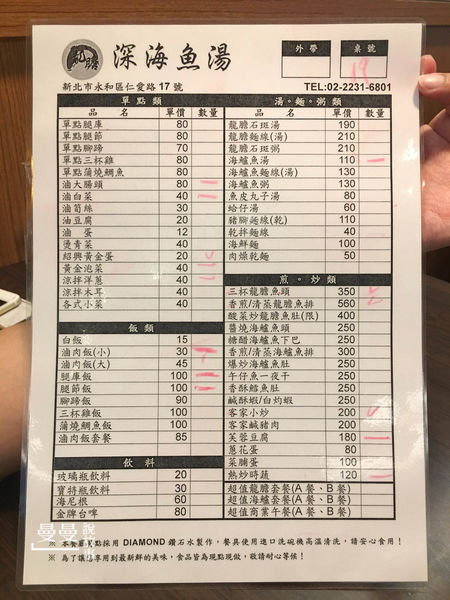 龍膽 深海魚湯
外帶 桌號
19
新北市永和區仁愛路 17 號 TEL:02-2231-6801
單點類
品 名 單價 數量
單點腿庫 80
單點腿節 80
單點腳蹄 70
單點三杯雞 80
單點蒲燒鯛魚 80
滷大腸頭 80
滷白菜 40
滷筍絲 30
油豆腐 20
滷 蛋 12
燙青菜 40
紹興黃金蛋 20
黃金泡菜 40
涼拌洋蔥 40
涼拌木耳 40
各式小菜 40
飯 類
品 名 單價 數量
白飯 15
滷肉飯(小) 30
滷肉飯(大) 45
腿庫飯 100
腿節飯 100
腳蹄飯 90
三杯雞飯 100
蒲燒鯛魚飯 100
滷肉飯套餐 85
飲 料
玻璃瓶飲料 20
寶特瓶飲料 30
海尼根 60
金牌台啤 80
湯。麵。粥類
品 名 單價 數量
龍膽石斑湯 190
龍膽麵線(湯) 210
龍膽石斑粥 210
海鱸魚湯 110
海鱸魚麵線(湯) 130
海鱸魚粥 130
魚皮丸子湯 80
蛤仔湯 60
豬腳麵線(乾) 110
乾拌麵線 40
海鮮麵 100
肉燥乾麵 50
煎。炒類
三杯龍膽魚頭 350
香煎/清蒸龍膽魚排 560
酸菜炒龍膽魚肚(限) 400
醬燒海鱸魚頭 250
糖醋海鱸魚下巴 250
香煎/清蒸海鱸魚排 300
爆炒海鱸魚肚 250
午仔魚一夜干 250
香酥鱈魚肚 250
鹹酥蝦/白灼蝦 250
客家小炒 200
客家鹹豬肉 200
芙蓉豆腐 180
蔥花蛋 80
菜脯蛋 100
熱炒時蔬 120
超值龍膽套餐(A 餐、B 餐)
超值海鱸套餐(A 餐、B 餐)
超值商業午餐(A 餐、B 餐)
※ 本餐廳餐點採用 DIAMOND 鑽石水製作，餐具使用進口洗碗機高溫清洗，請安心食用！
※ 為了讓您享用到最新鮮的美味，食品皆為現點現做，敬請耐心等候！
曼曼說故事